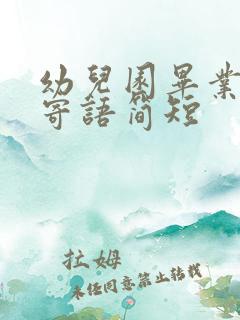 幼兒園畢業
寄語簡短
拉姆
未經同意禁止轉載